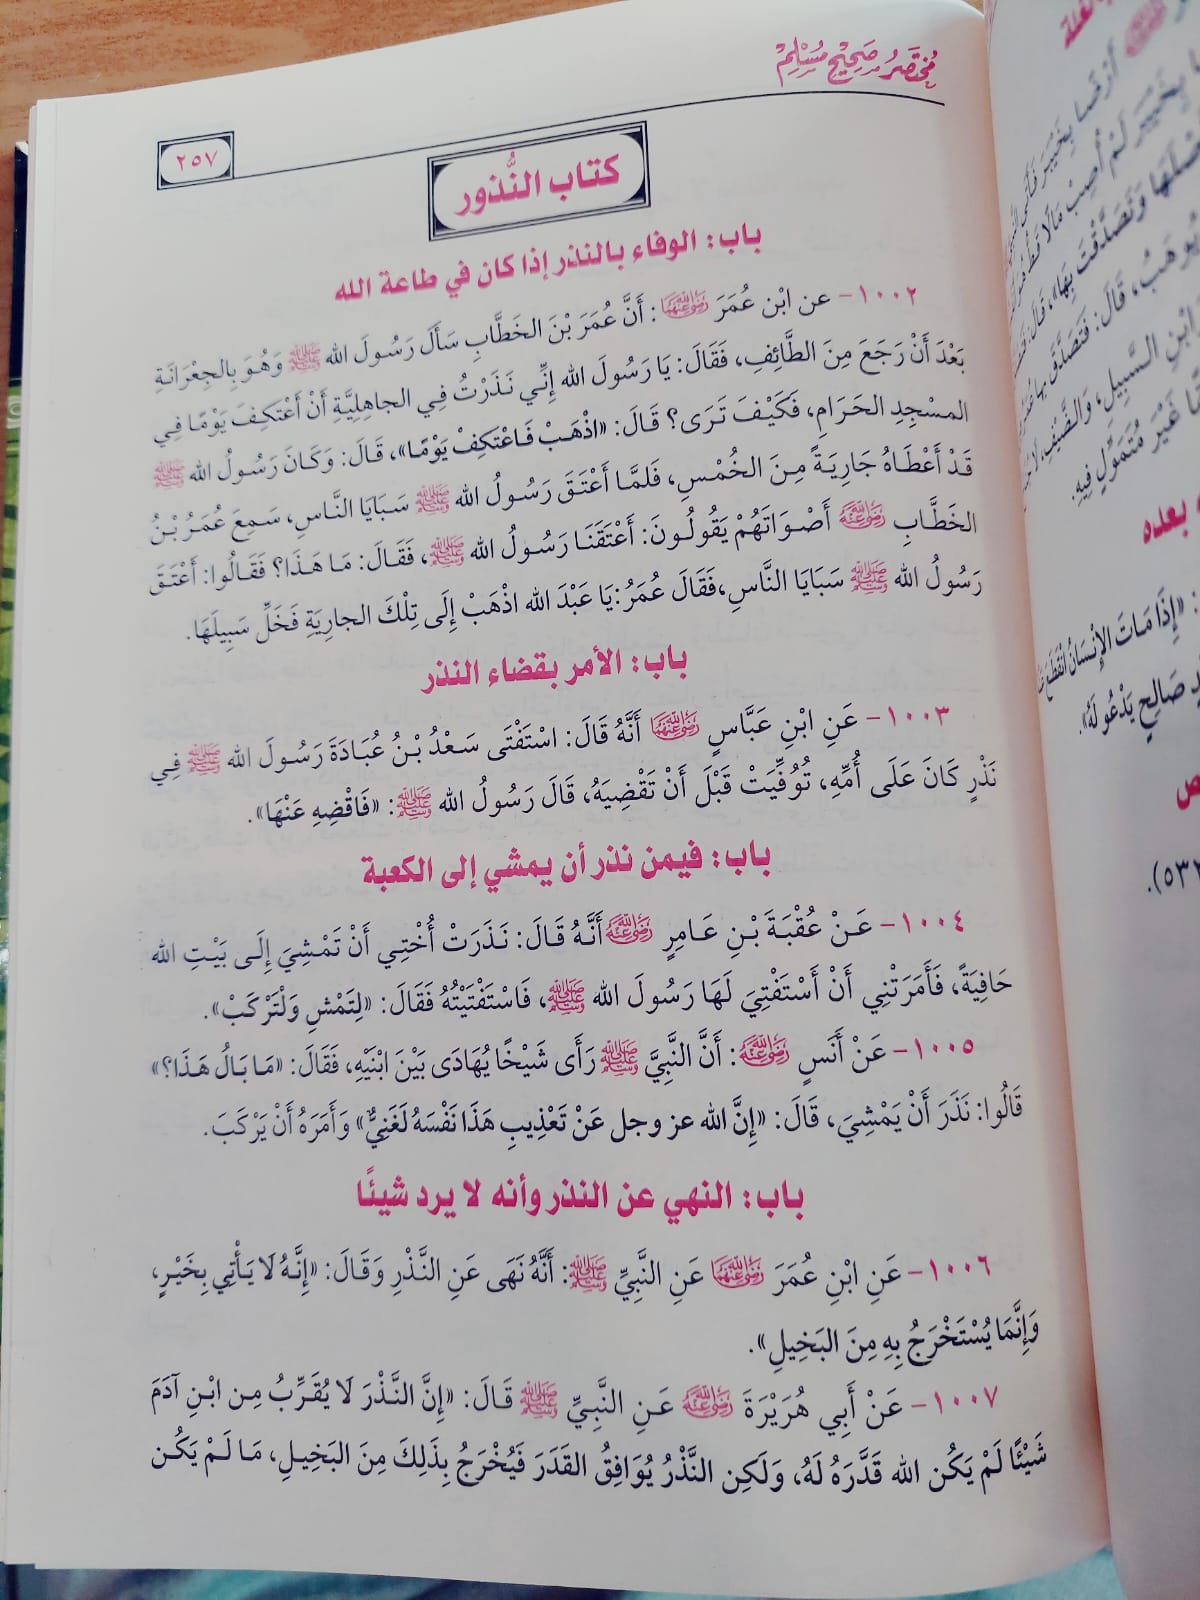 مُخْتَصَرُ صَحِيْحِ مُسْلِمْ
٢٥٧
كتاب النُّذور
باب: الوفاء بالنذر إذا كان في طاعة الله
١٠٠٢- عن ابْنِ عُمَرَ رَضِيَ اللهُ عَنْهُمَا: أَنَّ عُمَرَ بْنَ الخَطَّابِ سَأَلَ رَسُولَ الله ﷺ وَهُوَ بِالجِعْرَانَةِ
بَعْدَ أَنْ رَجَعَ مِنَ الطَّائِفِ، فَقَالَ: يَا رَسُولَ الله إِنِّي نَذَرْتُ فِي الجاهِلِيَّةِ أَنْ أَعْتَكِفَ يَوْمًا فِي
المسْجِدِ الحَرَامِ، فَكَيْفَ تَرَى؟ قَالَ: «اذْهَبْ فَاعْتَكِفْ يَوْمًا»، قَالَ: وَكَانَ رَسُولُ الله ﷺ
قَدْ أَعْطَاهُ جَارِيَةً مِنَ الخُمْسِ، فَلمَّا أَعْتَقَ رَسُولُ الله ﷺ سَبَايَا النَّاسِ، سَمِعَ عُمَرُ بْنُ
الخَطَّابِ رَضِيَ اللهُ عَنْهُ أَصْوَاتَهُمْ يَقُولُونَ: أَعْتَقَنَا رَسُولُ الله ﷺ، فَقَالَ: مَا هَذَا؟ فَقَالُوا: أَعْتَقَ
رَسُولُ الله ﷺ سَبَايَا النَّاسِ، فَقَالَ عُمَرُ: يَا عَبْدَ الله اذْهَبْ إِلَى تِلْكَ الجارِيَةِ فَخَلِّ سَبِيلَهَا.
باب: الأمر بقضاء النذر
١٠٠٣- عَنِ ابْنِ عَبَّاسٍ رَضِيَ اللهُ عَنْهُمَا أَنَّهُ قَالَ: اسْتَفْتَى سَعْدُ بْنُ عُبَادَةَ رَسُولَ الله ﷺ فِي
نَذْرٍ كَانَ عَلَى أُمِّهِ، تُوُفِّيَتْ قَبْلَ أَنْ تَقْضِيَهُ، قَالَ رَسُولُ الله ﷺ: «فَاقْضِهِ عَنْهَا».
باب: فيمن نذر أن يمشي إلى الكعبة
١٠٠٤- عَنْ عُقْبَةَ بْنِ عَامِرٍ رَضِيَ اللهُ عَنْهُ أَنَّهُ قَالَ: نَذَرَتْ أُخْتِي أَنْ تَمْشِيَ إِلَى بَيْتِ الله
حَافِيَةً، فَأَمَرَتْنِي أَنْ أَسْتَفْتِيَ لَهَا رَسُولَ الله ﷺ، فَاسْتَفْتَيْتُهُ فَقَالَ: «لِتَمْشِ وَلْتَرْكَبْ».
١٠٠٥- عَنْ أَنَسٍ رَضِيَ اللهُ عَنْهُ: أَنَّ النَّبِيَّ ﷺ رَأَى شَيْخًا يُهَادَى بَيْنَ ابْنَيْهِ، فَقَالَ: «مَا بَالُ هَذَا؟»
قَالُوا: نَذَرَ أَنْ يَمْشِيَ، قَالَ: «إِنَّ الله عز وجل عَنْ تَعْذِيبِ هَذَا نَفْسَهُ لَغَنِيٌّ» وَأَمَرَهُ أَنْ يَرْكَبَ.
باب: النهي عن النذر وأنه لا يرد شيئًا
١٠٠٦- عَنِ ابْنِ عُمَرَ رَضِيَ اللهُ عَنْهُمَا عَنِ النَّبِيِّ ﷺ: أَنَّهُ نَهَى عَنِ النَّذْرِ وَقَالَ: «إِنَّهُ لَا يَأْتِي بِخَيْرٍ،
وَإِنَّمَا يُسْتَخْرَجُ بِهِ مِنَ البَخِيلِ».
١٠٠٧- عَنْ أَبِي هُرَيْرَةَ رَضِيَ اللهُ عَنْهُ عَنِ النَّبِيِّ ﷺ قَالَ: «إِنَّ النَّذْرَ لَا يُقَرِّبُ مِن ابْنِ آدَمَ
شَيْئًا لَمْ يَكُن الله قَدَّرَهُ لَهُ، وَلَكِن النَّذْرُ يُوَافِقُ القَدَرَ فَيُخْرَجُ بِذَلِكَ مِنَ البَخِيلِ، مَا لَمْ يَكُن
ابْنِ السَّبِيلِ، وَالضَّيْفِ، لَا
غَيْرَ مُتَمَوِّلٍ فِيهِ.
بعده
: «إِذَا مَاتَ الإِنْسَانُ انْقَطَعَ
صَالِحٍ يَدْعُو لَهُ».